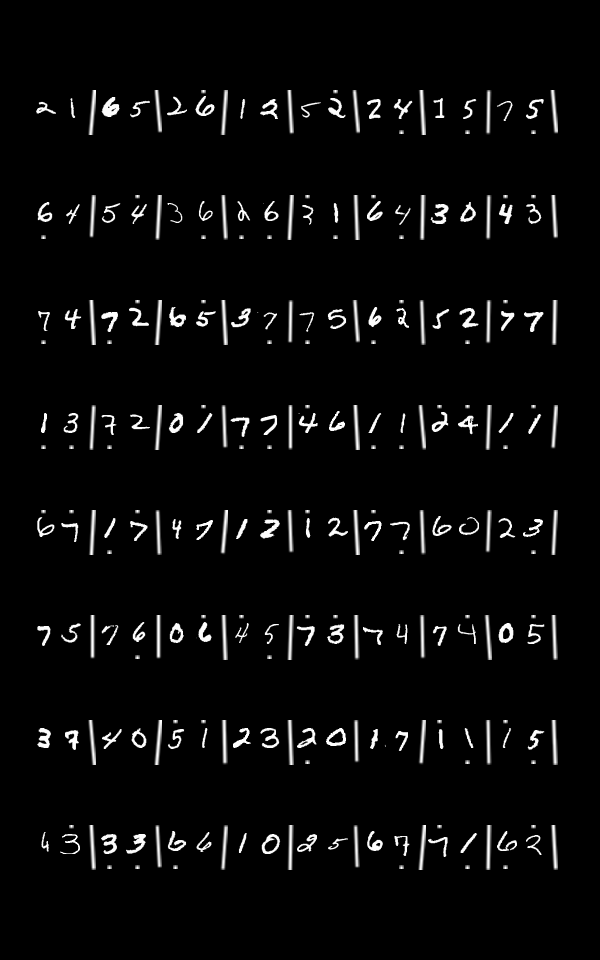 2 1 | 6 5 | 2 6 | 1 2 | 5 2 | 2 4 | 1 5 | 7 5 |
6 4 | 5 4 | 3 6 | 2 6 | 3 1 | 6 4 | 3 0 | 4 3 |
7 4 | 7 2 | 6 5 | 3 7 | 7 5 | 6 2 | 5 2 | 7 7 |
1 3 | 7 2 | 0 1 | 7 7 | 4 6 | 1 1 | 2 4 | 1 1 |
6 7 | 1 7 | 4 7 | 1 2 | 1 2 | 7 7 | 6 0 | 2 3 |
7 5 | 7 6 | 0 6 | 4 5 | 7 3 | 7 4 | 7 4 | 0 5 |
3 7 | 4 0 | 5 1 | 2 3 | 2 0 | 1 7 | 1 1 | 1 5 |
4 3 | 3 3 | 6 6 | 1 0 | 2 5 | 6 7 | 7 1 | 6 2 |